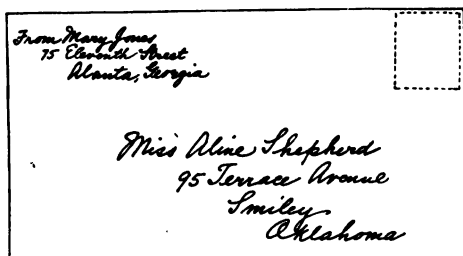 From Mary Jones
75 Eleventh Street
Alanta, Georgia
Miss Aline Shepherd
95 Terrace Avenue
Smiley
Oklahoma